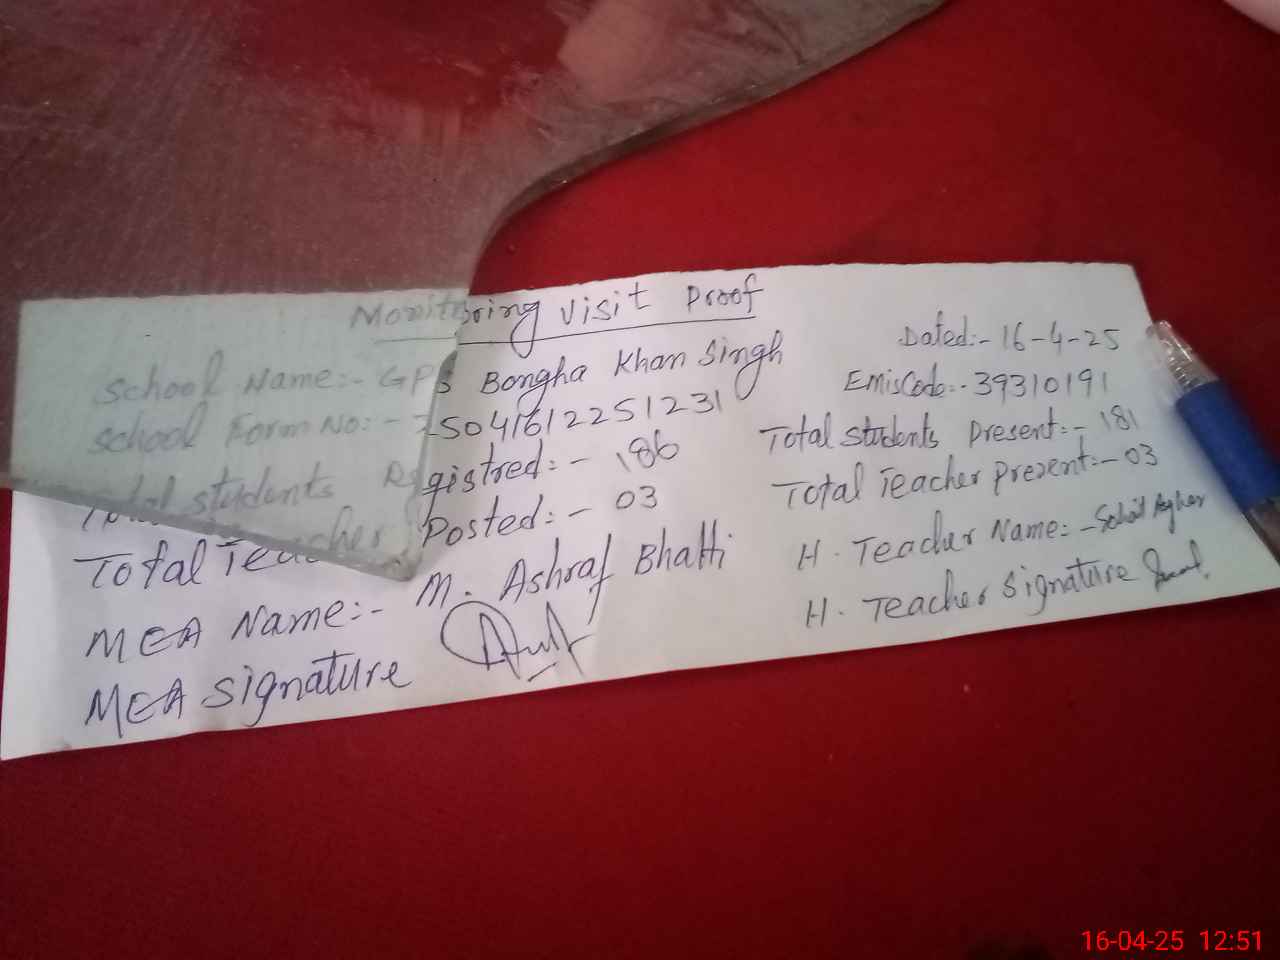 Monitoring Visit Proof
Dated:- 16-4-25
School Name:- GPS Bongha Khan Singh
EmisCode:- 39310191
School Form No:- 2504161225 1231
Total Students Present:- 181
Total Students Registred:- 186
Total Teacher Present:- 03
Total Teacher Posted:- 03
H. Teacher Name:- Sohail Asghar
MEA Name:- M. Ashraf Bhatti
H. Teacher Signature
MEA Signature
16-04-25 12:51